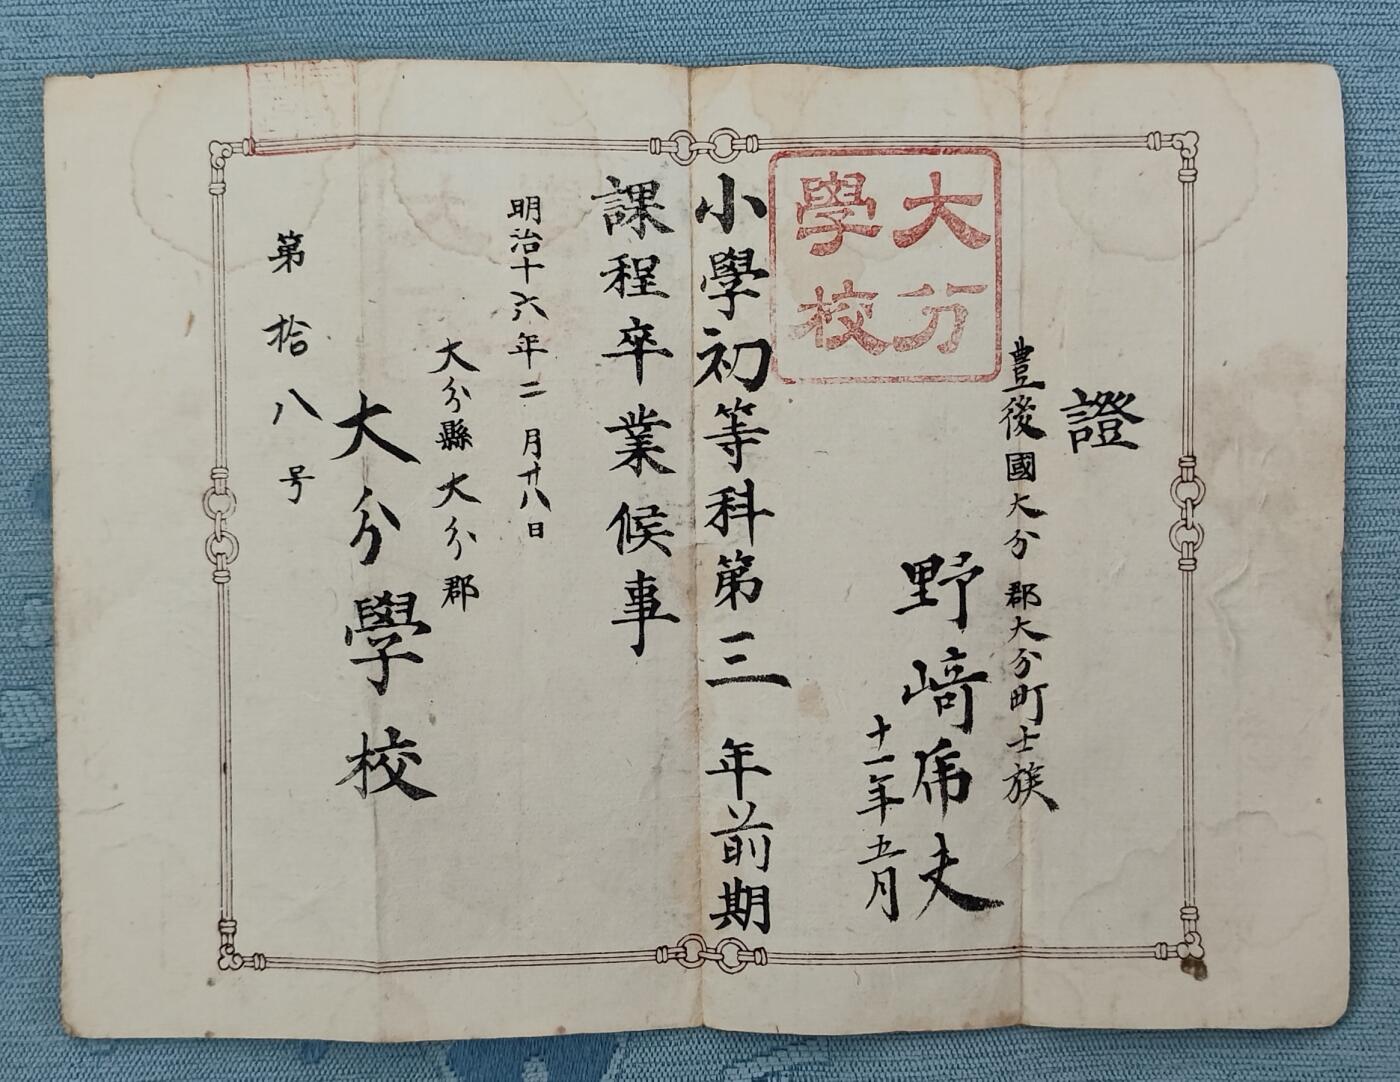 證
豊後國大分郡大分町士族
野﨑虎夫
十一年五月
大分
學校
小學初等科第三年前期
課程卒業候事
明治十六年二月廿八日
大分縣大分郡
大分學校
第拾八号